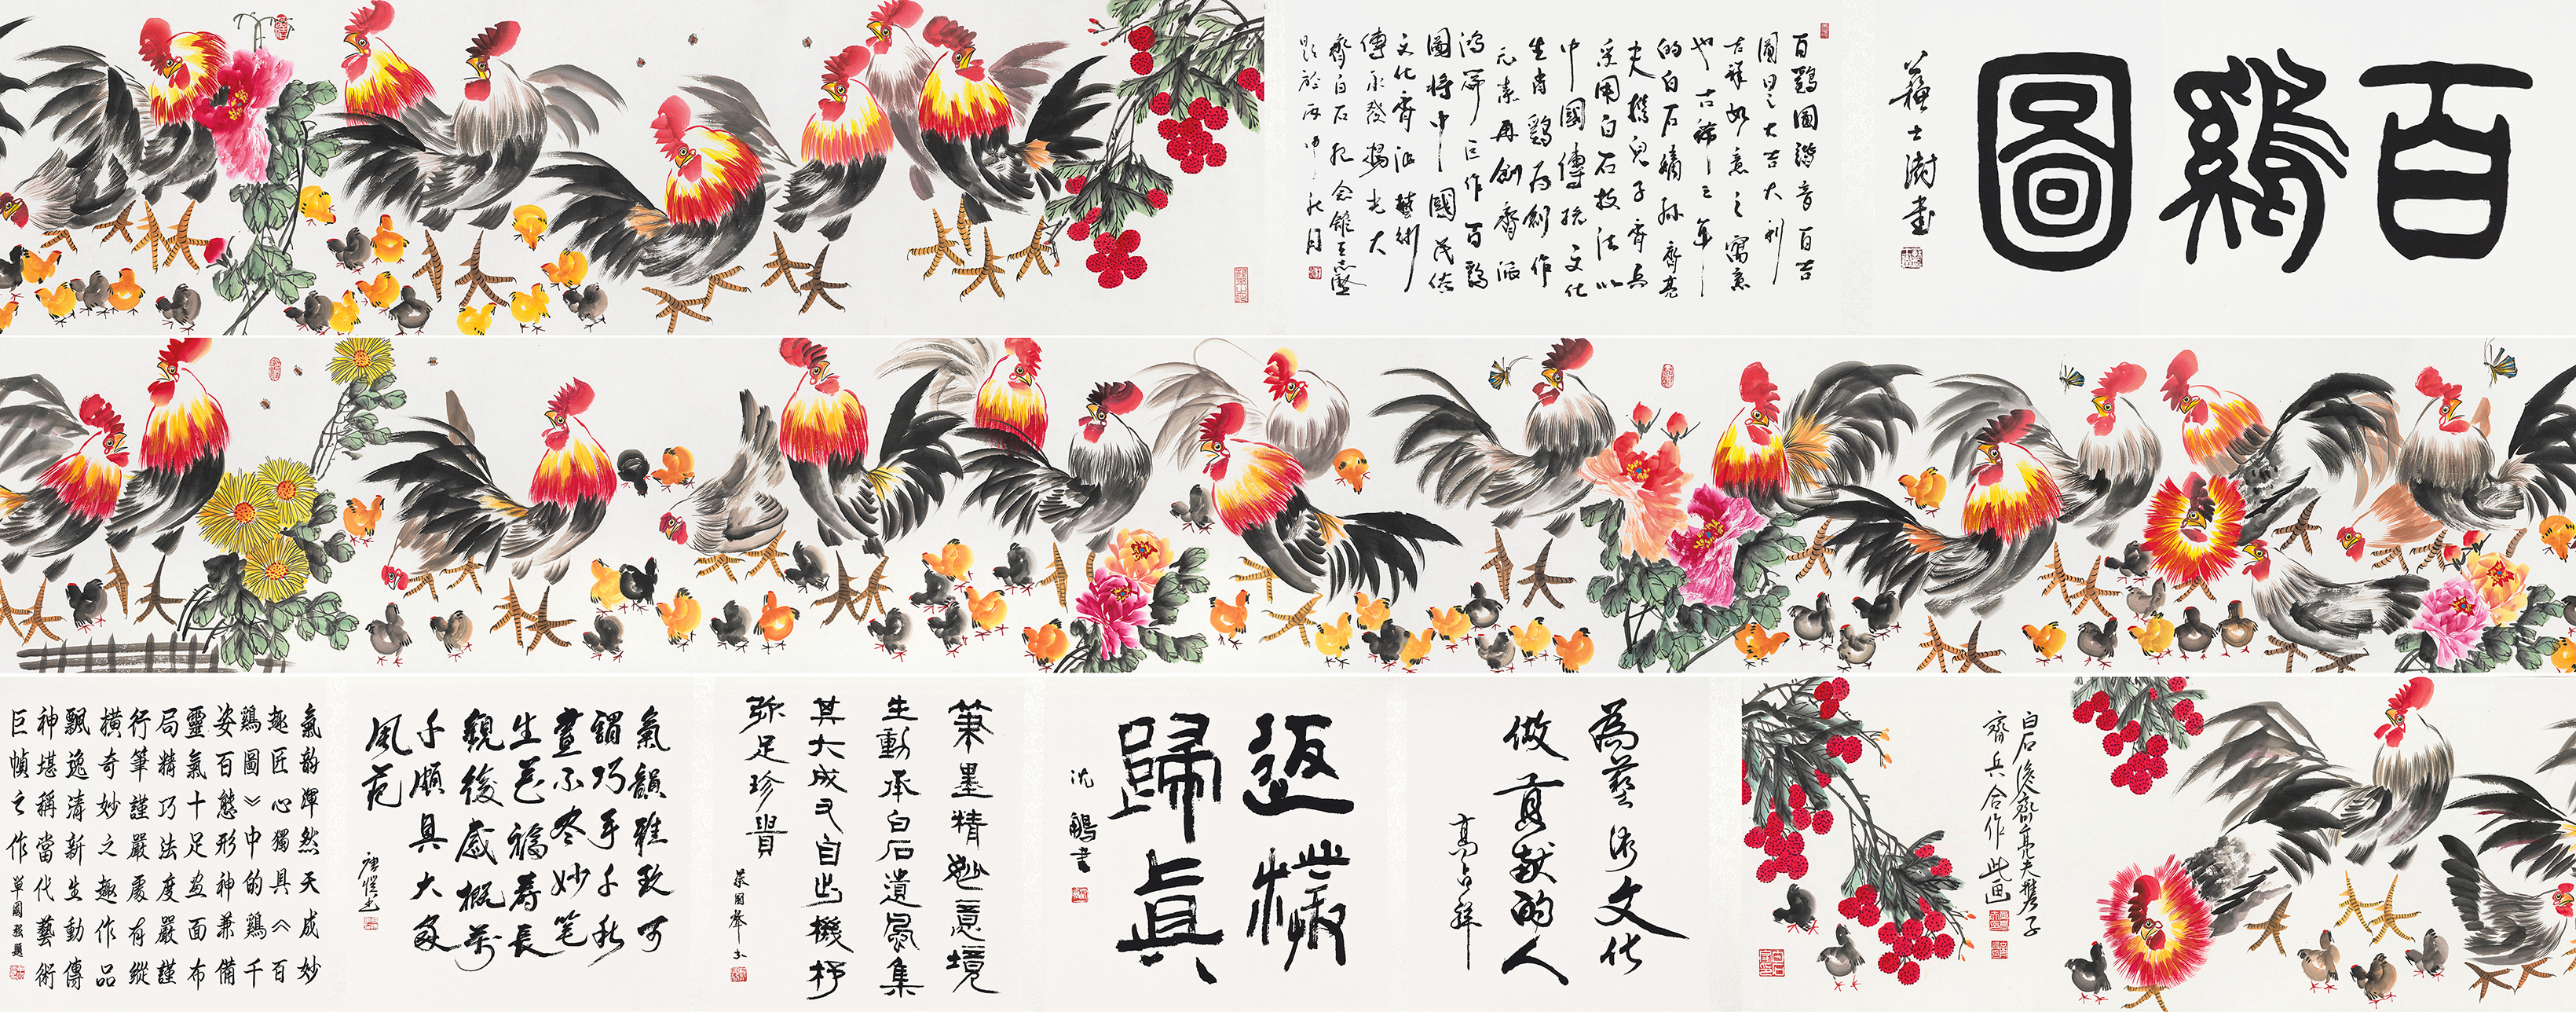 百鷄圖
蘇士澍書
百鷄圖諧音百吉
圖曰之大吉大利
吉祥如意之寓意
也古稀之年
的白石嫡孫齊亮
夫攜兒子齊兵
采用白石技法以
中國傳統文化
生肖鷄为創作
元素再創齊派
鴻篇巨作百鷄
圖將中國民俗
文化齊派藝術
傳承發揚光大
齊白石紀念館王志堅
題於丙申秋月
白石後裔齊亮夫攜子
齊兵合作此画
為藝術文化
做貢献的人
高占祥
返樸
歸真
沈鵬書
筆墨精妙意境
生動承白石遺風集
其大成又自出機杼
弥足珍貴
蔡國聲書
氣韻雅致可
謂巧手千秋
畫不冬妙笔
生花福寿長
觀後感概萬
千順具大家
風范
氣韵渾然天成妙
趣匠心獨具《百
鷄圖》中的鷄千
姿百態形神兼備
靈氣十足画面布
局精巧法度嚴謹
行筆謹嚴處有縱
橫奇妙之趣作品
飄逸清新生動傳
神堪稱當代藝術
巨幀之作 單國强題